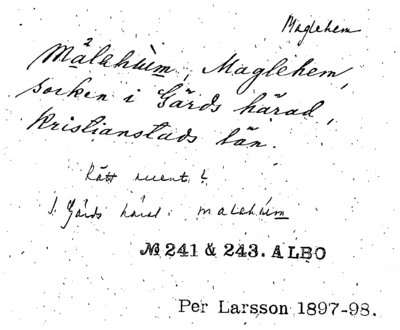 Maglehem
Målehùm, Maglehem,
socken i Gärds härad,
Kristianstads län.
Rätt accent?
I Gärds härad: malehùm
№ 241 & 243. ALBO
Per Larsson 1897-98.